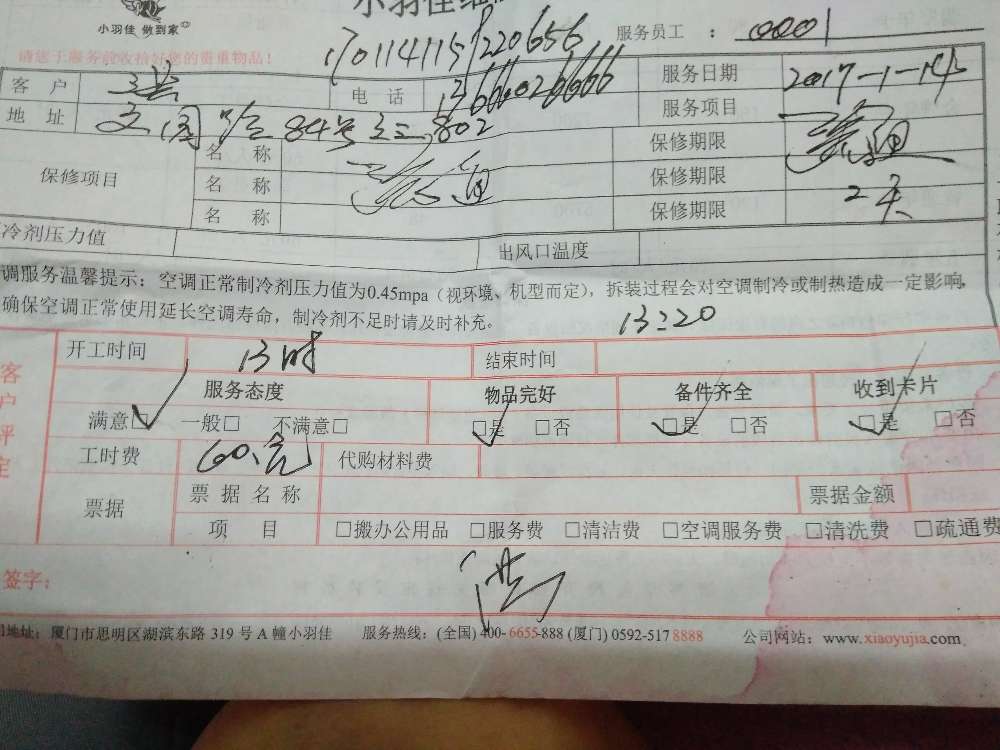 小羽佳 做到家
小羽佳维
服务员工 : 0001
请您于服务前收拾好您的贵重物品!
17011411151220656
客 户 电 话 13666026666 服务日期 2017-1-14
地 址 84号 802 服务项目 疏通
保修项目 名 称 疏通 保修期限
名 称 保修期限 2天
名 称 保修期限
冷剂压力值 出风口温度
调服务温馨提示:空调正常制冷剂压力值为0.45mpa(视环境、机型而定),拆装过程会对空调制冷或制热造成一定影响,
确保空调正常使用延长空调寿命,制冷剂不足时请及时补充。
13:20
开工时间 13时 结束时间
客户评定
服务态度 物品完好 备件齐全 收到卡片
满意□ 一般□ 不满意□ □是 □否 □是 □否 □是 □否
工时费 60元 代购材料费
票据 票据名称 票据金额
项 目 □搬办公用品 □服务费 □清洁费 □空调服务费 □清洗费 □疏通费
签字:
司地址:厦门市思明区湖滨东路 319 号 A 幢小羽佳 服务热线:(全国) 400-6655-888 (厦门) 0592-5178888 公司网站:www.xiaoyujia.com